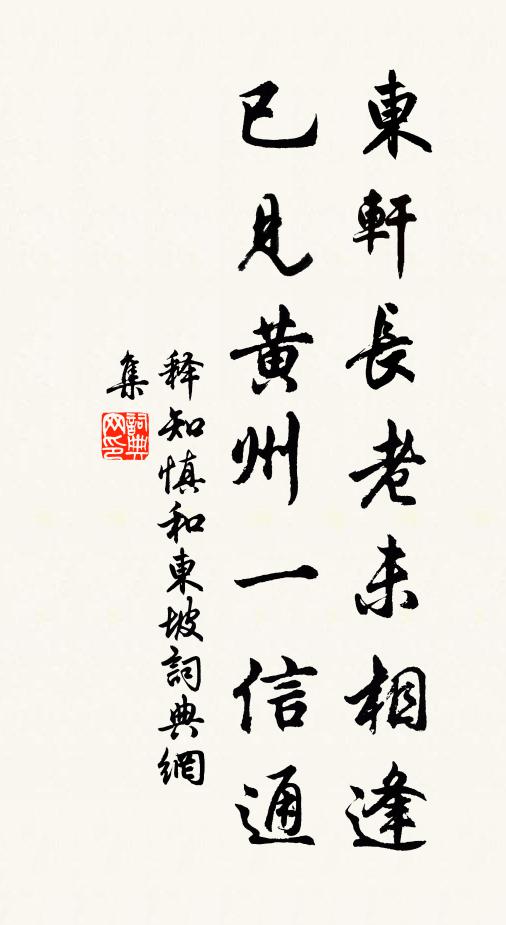 東軒長老未相逢
已見黄州一信通
释知慎和東坡詞典網
集
詞典網印